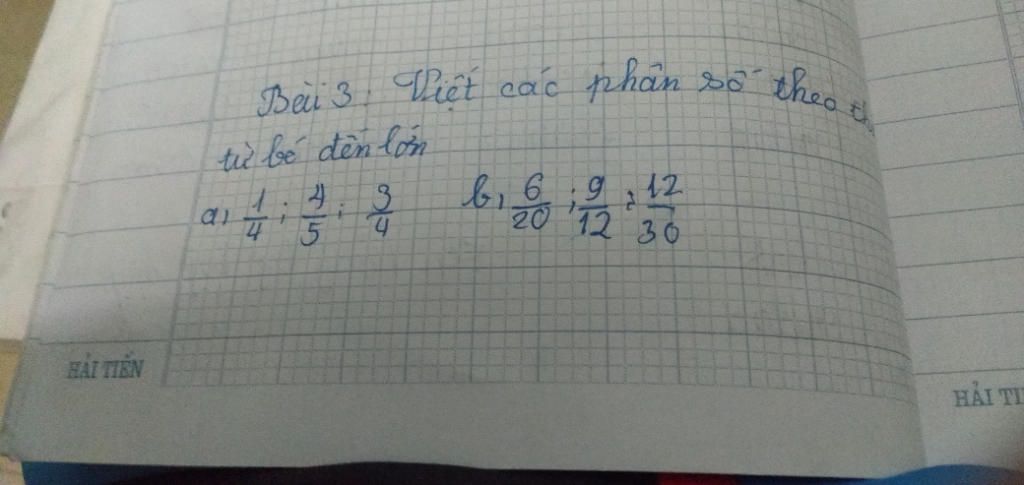 Bài 3: Viết các phân số theo
từ bé đến lớn
a, 1/4 ; 4/5 ; 3/4 b, 6/20 ; 9/12 ; 12/30
HẢI TIẾN
HẢI